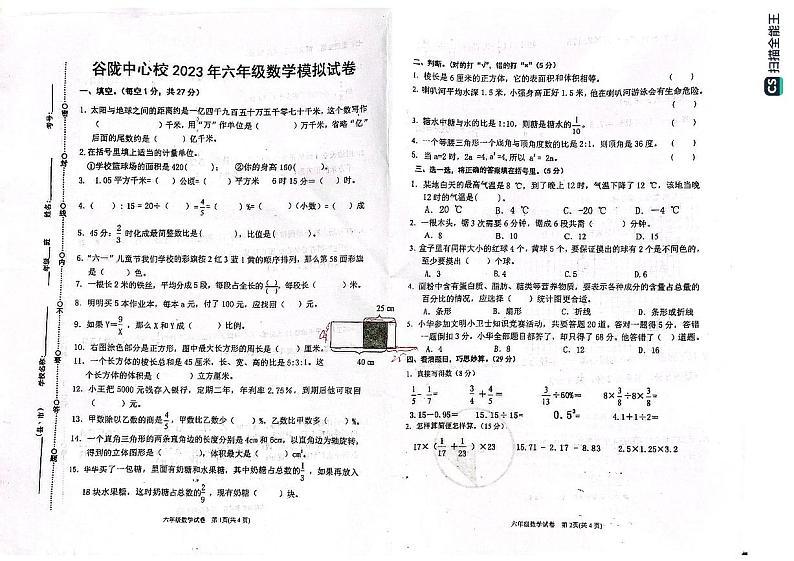 谷陇中心校2023年六年级数学模拟试卷
一、填空。（每空1分，共27分）
1. 太阳与地球之间的距离约是一亿四千九百五十万五千零七十千米，这个数写作
（ ）千米，用“万”作单位是（ ）万千米，省略“亿”
后面的尾数约是（ ）亿千米。
2.在括号里填上适当的计量单位。
①学校篮球场的面积是420（ ）； ②你的身高160（ ）。
3. 1.05平方千米=（ ）公顷=（ ）平方米 6时15分=（ ）时。
4.（ ）：15 = 20÷（ ）= 4/5 =（ ）%=（ ）（小数）=（ ）成
5. 45分：2/3 时化成最简整数比是（ ），比值是（ ）。
6.“六一”儿童节我们学校的彩旗按2红3蓝1黄的顺序排列，那么第58面彩旗
是（ ）色。
7. 一根长2米的铁丝，平均分成5段，每段占全长的( )/( )，每段长（ ）米。
8. 明明买5本作业本，每本a元，付了100元，应找回（ ）元。
9. 如果Y=9/X，那么X和Y成（ ）比例。
10. 右图涂色部分是正方形，图中最大长方形的周长是（ ）厘米。
25 cm
40 cm
11. 一个长方体的棱长总和是45厘米，长、宽、高的比是5:3:1。这
个长方体的体积是（ ）立方厘米。
12. 小王把5000元钱存入银行，定期二年，年利率2.75%，到期后他可取回
（ ）元。
13. 甲数除以乙数的商是4/5，甲数比乙数少（ ）%，乙数比甲数多（ ）%。
14. 一个直角三角形的两条直角边的长度分别是4cm和6cm，以直角边为轴旋转，
得到的立体图形是（ ），体积最大是（ ）cm³。
15. 华华买了一包糖，里面有奶糖和水果糖，其中奶糖占总数的1/3，如果再放入
18块水果糖，这时奶糖占总数的2/9，现有奶糖（ ）块。
六年级数学试卷 第1页(共4页)
二、判断。（对的打“√”，错的打“×”（5分）
1. 棱长是6厘米的正方体，它的表面积和体积相等。（ ）
2. 喇叭河平均水深1.5米，小强身高正好1.5米，他在喇叭河游泳会有生命危险。
（ ）
3. 糖水中糖与水的比是1:10，则糖是糖水的1/10。（ ）
4. 一个等腰三角形一个底角与顶角度数的比是2:1，则顶角是36度。（ ）
5. 当a=2时，2a =4,a²=4,所以 a² = 2a。（ ）
三、选一选，将正确的答案填在括号里。（5分）
1. 某地白天的最高气温是8 ℃，到了晚上12时，气温下降了12 ℃，该地当晚
12时的气温是( )。
A. 20 ℃ B. 4 ℃ C. -20 ℃ D. -4 ℃
2. 一根木头，锯3次需要6分钟，锯成6段共需（ ）分钟。
A. 8 B. 10 C. 12 D. 15
3. 盒子里有同样大小的红球4个，黄球5个，要保证摸出的球有2个是不同色的，
至少要摸出（ ）个球。
A. 3 B.4 C. 5 D.6
4. 面粉中含有蛋白质、脂肪、糖类等营养物质，要表示各种成分的含量占总量的
百分比的情况，应选择（ ）统计图更合适。
A. 条形 B. 扇形 C. 折线 D. 条形或折线
5. 小华参加文明小卫士知识竞赛活动，共要答题20道，答对一题得5分，答错
一题倒扣3分，小华全部题目都答了，却只得了68分，他答错了（ ）道题。
A. 4 B. 8 C. 12 D. 16
四、看清题目，巧思妙算。（29分）
1. 直接写得数（8分）
1/5-1/7= 3/4+4/5= 3/13÷60%= 8×3/8÷8×3/8=
3.15-0.95= 15.15÷15= 0.5³= 4.1+1÷2=
2. 怎样算简便怎样算。（15分）
17×（1/17+1/23）×23 15.71-2.17-8.83 2.5×1.25×3.2
六年级数学试卷 第2页(共4页)
考号：
姓名：
年级 班
学校名称：
（县、市）
CS 扫描全能王